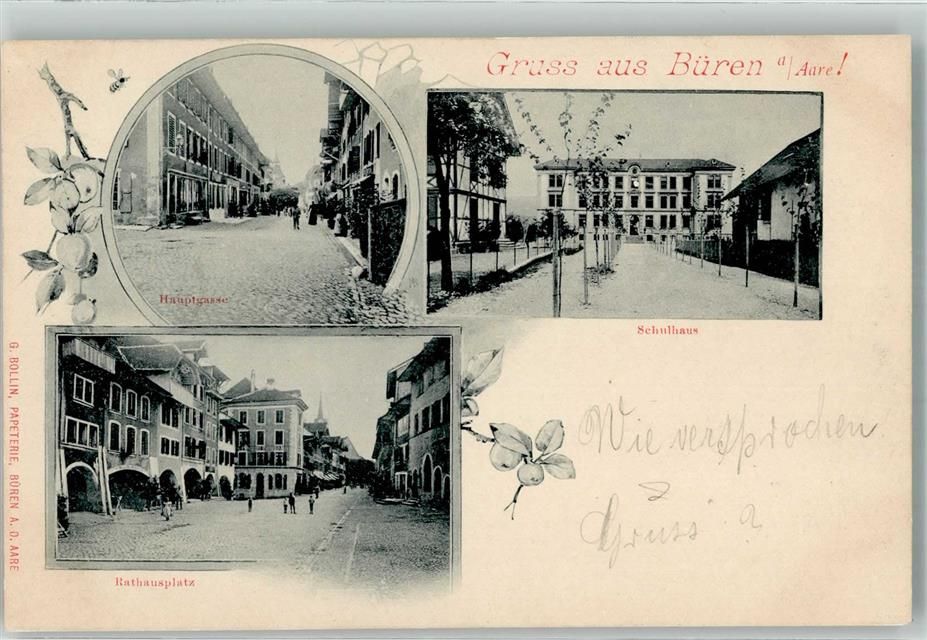 Gruss aus Büren a/Aare!
Hauptgasse
Schulhaus
Rathausplatz
G. BOLLIN, PAPETERIE, BÜREN A. D. AARE
Wie versprochen
Gruss